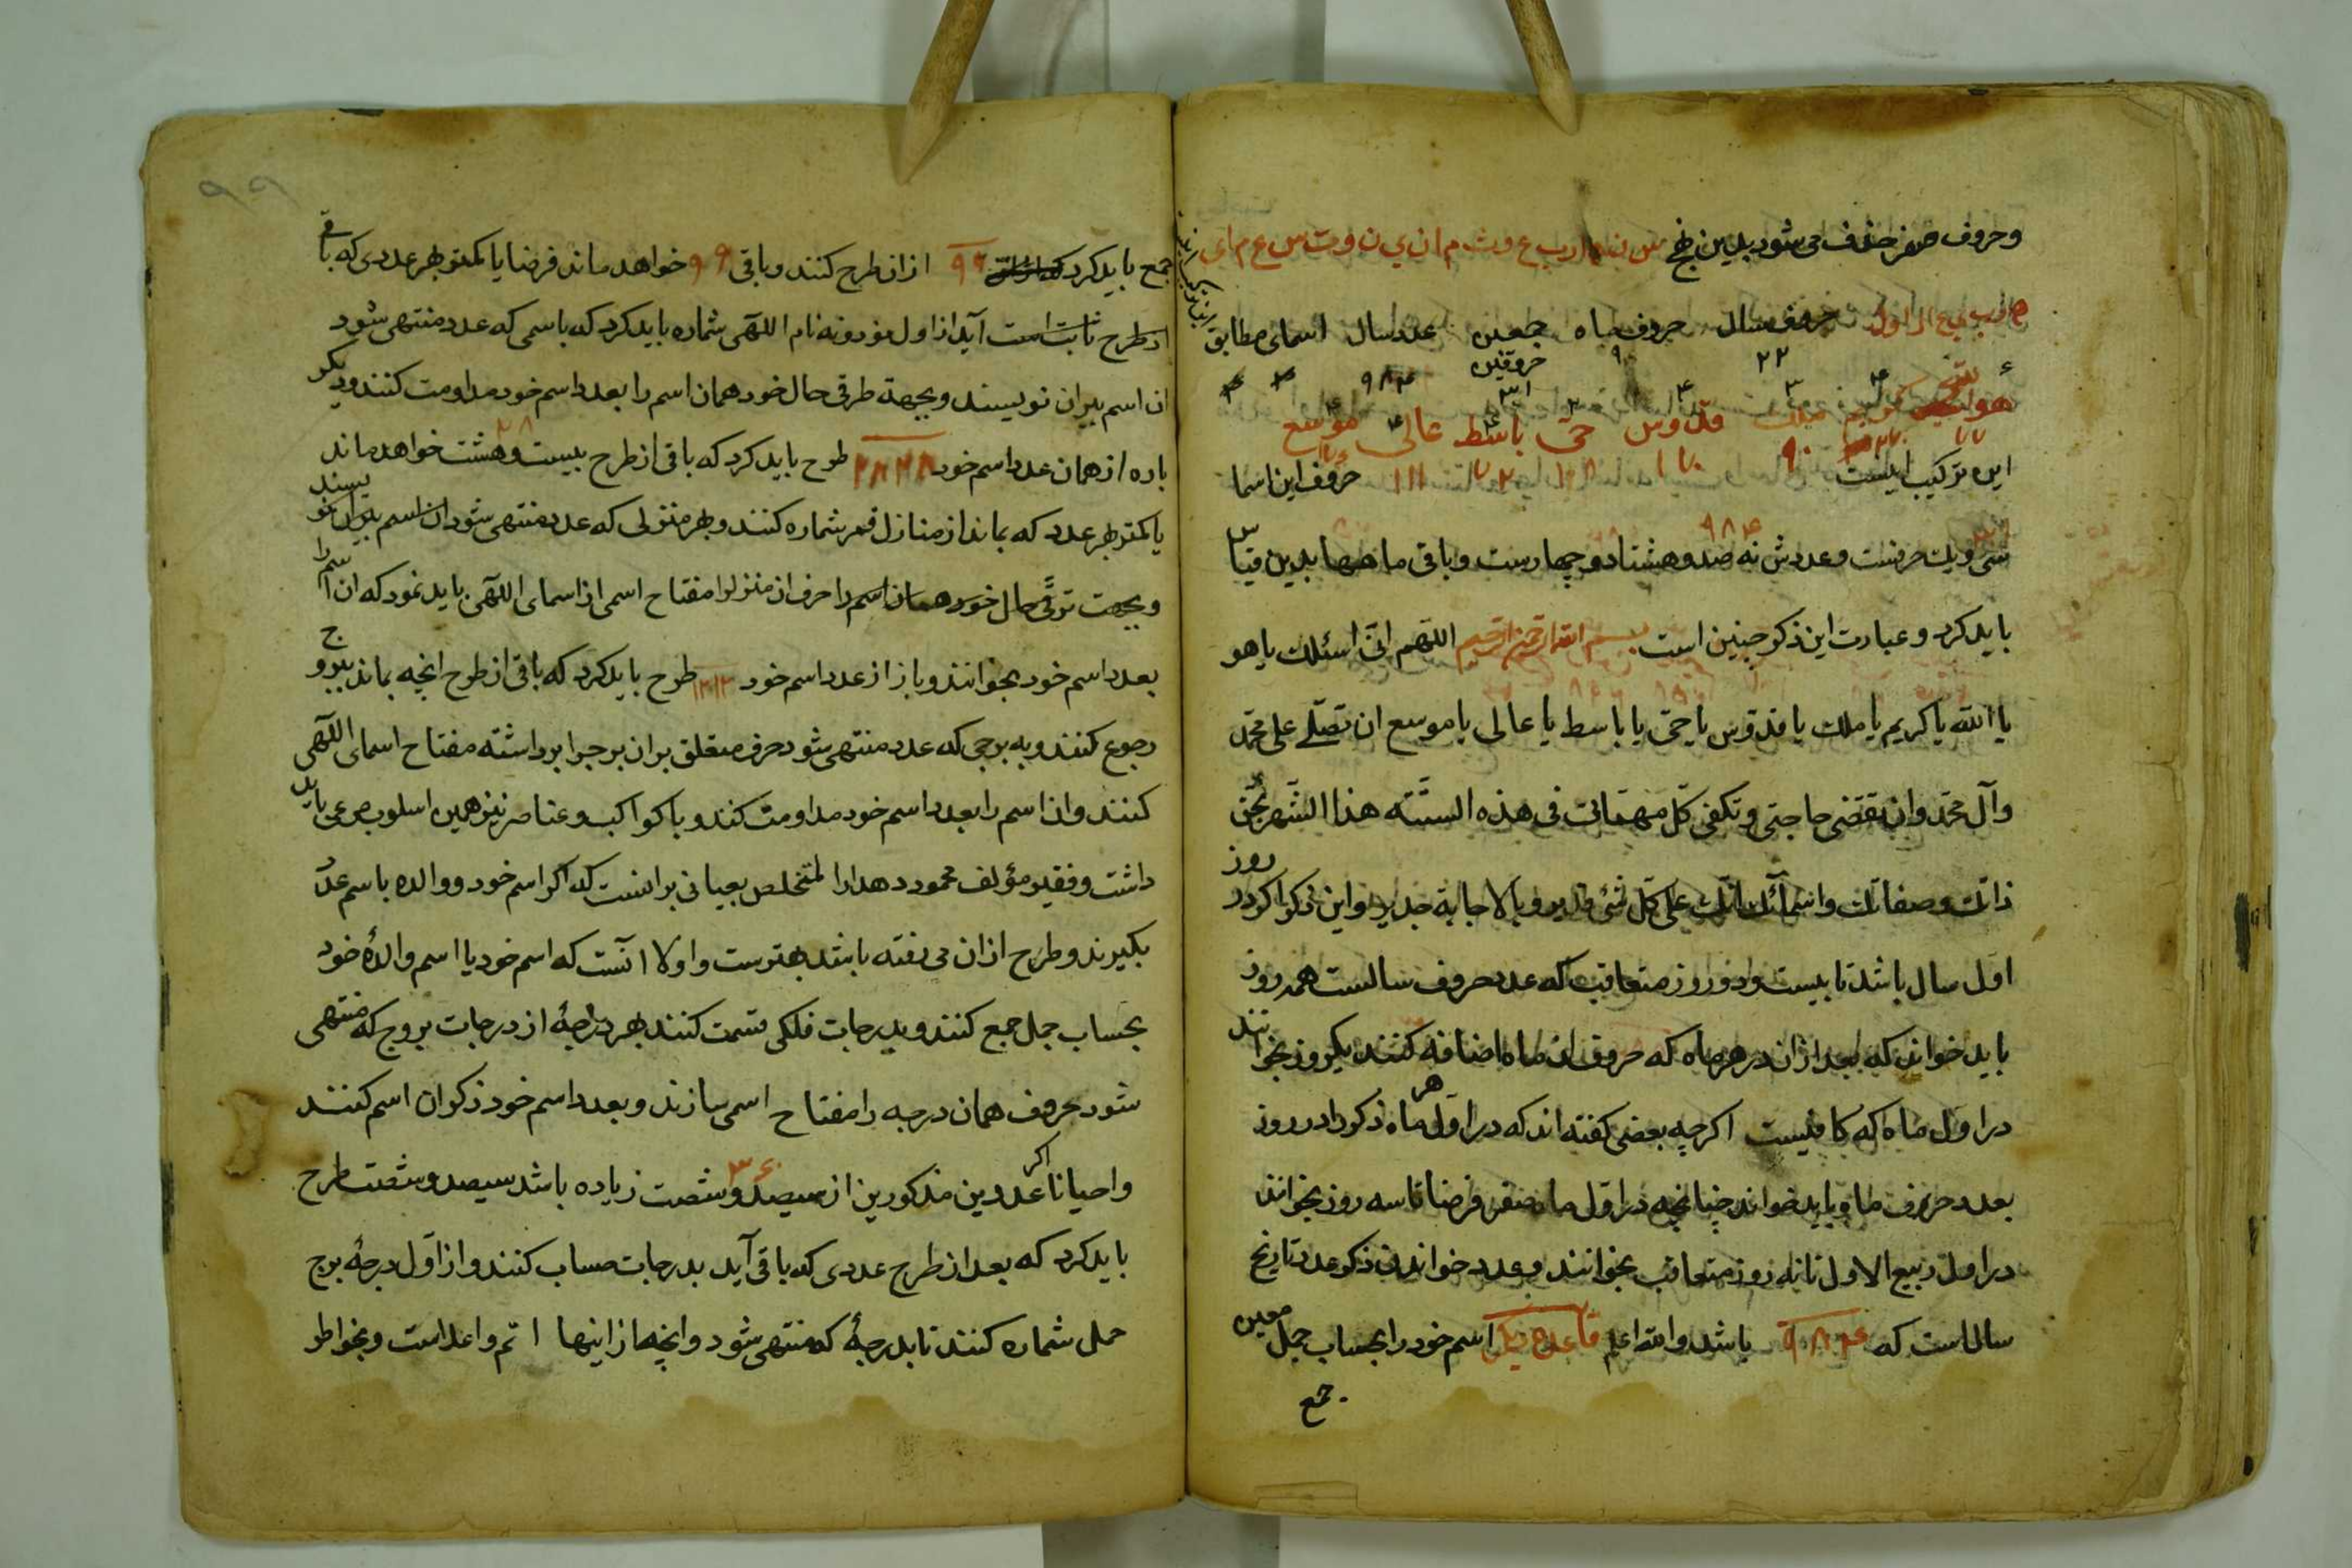 وحروف صفر حذف می شود بدین نهج س ن ه ا ر ب ع و ث م ا ن ی ن و ت س ع م ا ی
ه ر ب ی ع ا ل ا و ل حروف سال حروف ماه جمعین عدد سال اسمای مطابق
۲۲ ۹ حروفین ۳۱ ۹۸۴
هو الله کریم ملک قدوس حی باسط عالی موسع
این ترکیب اینست ۹۰ ۱۷۰ ۱۸ ۷۲ ۱۱۱ ۱۷۶ حروف این اسما
سی ویک حرفست وعددش نه صد وهشتاد وچهارست وباقی ماهها بدین قیاس ۹۸۴
باید کرد وعبارت این ذکر چنین است بسم الله الرحمن الرحیم اللهم انی اسئلک یا هو
یا الله یا کریم یا ملک یا قدوس یا حی یا باسط یا عالی یا موسع ان تصلی علی محمد
وآل محمد وان تقضی حاجتی وتکفی کل مهماتی فی هذه السنته هذا الشهر بحق
ذاتک وصفاتک واسمائک انک علی کل شیٔ قدیر وبالاجابة جدیر واین ذکر اکر در روز
اول سال باشد تا بیست ودو روز متعاقب که عدد حروف سالست همه روز
باید خواند که بعد ازان در هر ماه که حروف ان ماه اضافه کنند یکروز بخوانند
در اول ماه که کافیست اکرچه بعضی کفته اند که در اول هر ماه ذکر را در روز
بعدد حروف ماه باید خواند چنانچه در اول ماه صفر فرضا تا سه روز بخوانند
در اول ربیع الاول تا نه روز متعاقب بخوانند وعدد خواندن ذکر عدد تاریخ
سال است که ۹۸۴ باشد والله اعلم قاعده دیکر اسم خود را بحساب جمل معین
جمع
۹۹
جمع باید کرد ۹۹ ازان طرح کنند وباقی ۹۹ خواهد ماند فرضا یا کمتر بهر عددی که باقی
از طرح ثابت است آید از اول نود ونه نام اللهی شماره باید کرد که باسمی که عدد منتهی شود
ان اسم بیران نویسند وبجهة طرقی حال خود همان اسم را بعدد اسم خود مداومت کنند ودیکر
باره از همان عدد اسم خود ۲۸۲۸ طرح باید کرد که باقی از طرح بیست وهشت خواهد ماند ۲۸
یا کمتر بهر عدد که بماند از منازل قمر شماره کنند وبهر منزلی که عدد منتهی شود ان اسم بیران نویسند
وبجهت ترقی حال خود همان اسم را حرف ان منزلرا مفتاح اسمی از اسمای اللهی باید نمود که ان اسم را
بعدد اسم خود بخوانند وباز از عدد اسم خود ۱۲۱۲ طرح باید کرد که باقی از طرح انچه بماند ببروج
رجوع کنند وبه برجی که عدد منتهی شود حرف متعلق بران برجرا برداشته مفتاح اسمای اللهی
کنند وان اسم را بعدد اسم خود مداومت کنند وبا کواکب وعناصر نیز همین اسلوب مرعی باید
داشت وفقیر مؤلف محمود دهدارا لمتخلص بعیانی براینست که اکر اسم خود ووالده باسم عدد
بکیرند وطرح ازان می رفته باشد بهترست واولا آنست که اسم خود یا اسم والدۀ خود
بحساب جمل جمع کنند وبدرجات فلکی قسمت کنند بهر درجۀ از درجات بروج که منتهی
شود بحروف همان درجه را مفتاح اسمی سازند وبعدد اسم خود ذکر ان اسم کنند
واحیانا اکر عددین مذکورین از سیصد وشصت زیاده باشد سیصد وشصت طرح ۳۶۰
باید کرد که بعد از طرح عددی که باقی آید بدرجات حساب کنند واز اول درجۀ برج
حمل شماره کنند تا بدرجۀ که منتهی شود وانچه از اینها اتم واعلاست وبخواطر